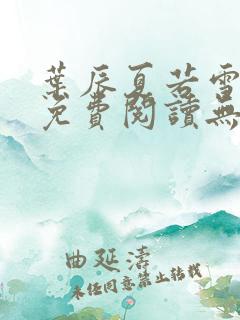 葉辰夏若雪
免費閱讀無
曲延濤
未經同意禁止轉載